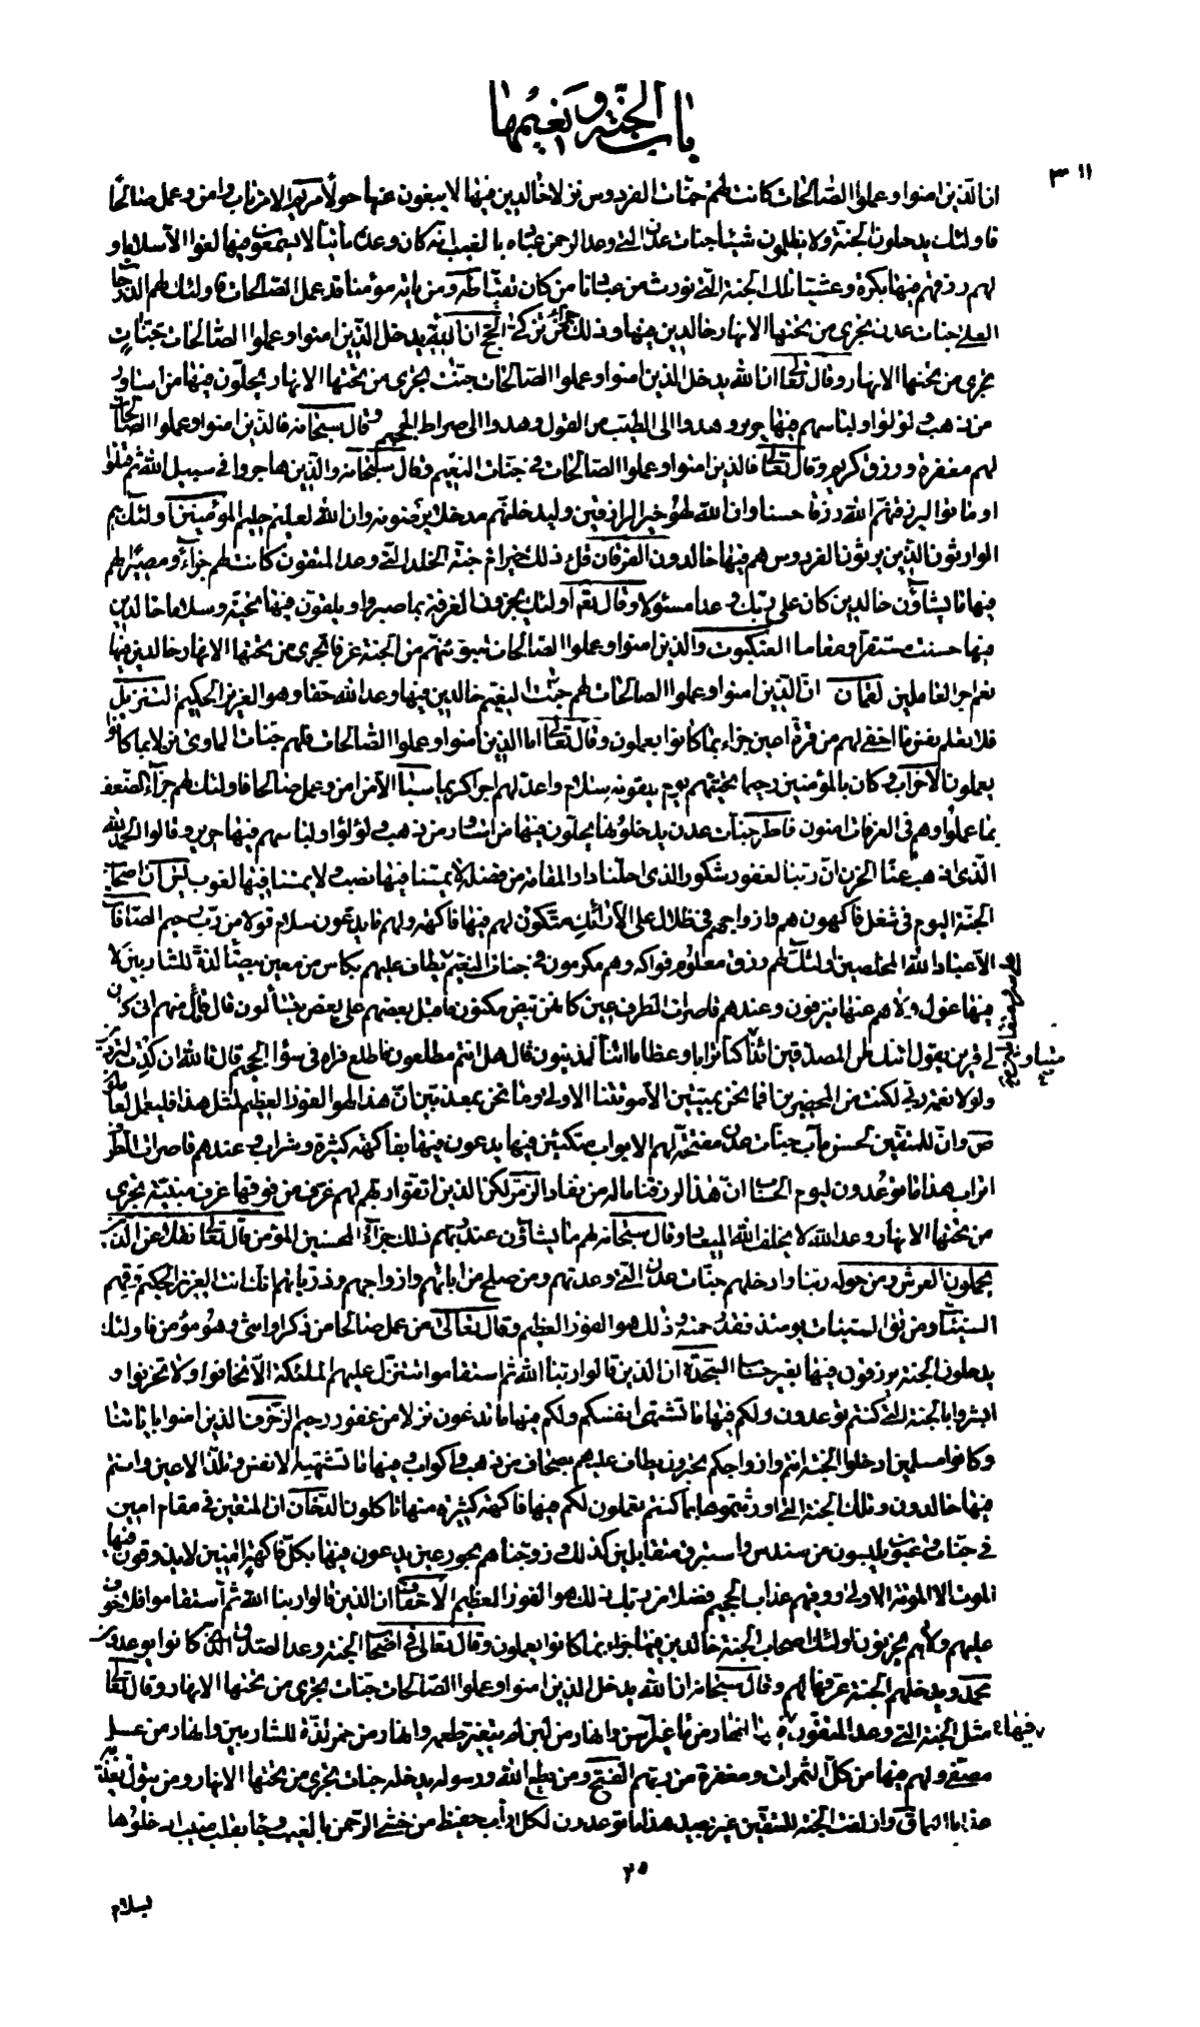 باب الجنّة ونعيمها
٣١١
ان الّذين امنوا وعملوا الصّالحات كانت لهم جنّات الفردوس نزلا خالدين فيها لا يبغون عنها حولا مريم الا من تاب وامن وعمل صالحًا
فاولئك يدخلون الجنة ولا يظلمون شيئا جنات عدن الّتي وعد الرحمن عباده بالغيب انه كان وعده مأتيا لا يسمعون فيها لغوا الا سلاما و
لهم رزقهم فيها بكرة وعشيّا تلك الجنة الّتي نورث من عبادنا من كان تقيّا طه ومن يأته مؤمنا قد عمل الصّالحات فاولئك لهم الدّرجات
العلى جنات عدن تجري من تحتها الانهار خالدين فيها وذلك جزاء من تزكّى الحج ان الله يدخل الّذين امنوا وعملوا الصّالحات جنّات
تجري من تحتها الانهار وقال تعالى ان الله يدخل الذين امنوا وعملوا الصّالحات جنّت تجري من تحتها الانهار يحلّون فيها من اساور
من ذهب ولؤلؤا ولباسهم فيها حرير وهدوا الى الطيّب من القول وهدوا الى صراط الحميد وقال سبحانه فالّذين امنوا وعملوا الصّالحات
لهم مغفرة ورزق كريم وقال تعالى فالذين امنوا وعملوا الصّالحات في جنّات النعيم وقال سبحانه والّذين هاجروا في سبيل الله ثم قتلوا
او ماتوا ليرزقنّهم الله رزقا حسنا وان الله لهو خير الرازقين وليدخلنّهم مدخلا يرضونه وان الله لعليم حليم المؤمنين اولئك هم
الوارثون الّذين يرثون الفردوس هم فيها خالدون الفرقان قل اذلك خير ام جنّة الخلد الّتي وعد المتقون كانت لهم جزاء ومصيرا لهم
فيها ما يشاؤن خالدين كان على ربّك وعدا مسئولا وقال تعالى اولئك يجزون الغرفة بما صبروا ويلقّون فيها تحيّة وسلاما خالدين
فيها حسنت مستقرّا ومقاما العنكبوت والذين امنوا وعملوا الصّالحات لنبوّئنّهم من الجنة غرفا تجري من تحتها الانهار خالدين فيها
نعم اجر العاملين لقمان انّ الّذين امنوا وعملوا الصالحات لهم جنّت النعيم خالدين فيها وعد الله حقّا وهو العزيز الحكيم التنزيل
فلا تعلم نفس ما اخفي لهم من قرّة اعين جزاء بما كانوا يعملون وقال تعالى اما الّذين امنوا وعملوا الصّالحات فلهم جنّات المأوى نزلا بما كانوا
يعملون الاحزاب وكان بالمؤمنين رحيما تحيّتهم يوم يلقونه سلام واعدّ لهم اجرا كريما سبأ الا من امن وعمل صالحا فاولئك لهم جزاء الضّعف
بما عملوا وهم في الغرفات امنون فاطر جنّات عدن يدخلونها يحلّون فيها من اساور من ذهب ولؤلؤا ولباسهم فيها حرير وقالوا الحمد لله
الّذي اذهب عنّا الحزن انّ ربّنا لغفور شكور الذي احلّنا دار المقامة من فضله لا يمسّنا فيها نصب ولا يمسّنا فيها لغوب يس ان اصحاب
الجنّة اليوم في شغل فاكهون هم وازواجهم في ظلال على الارائك متّكئون لهم فيها فاكهة ولهم ما يدّعون سلام قولا من ربّ رحيم الصّافّات
الا عباد الله المخلصين اولئك لهم رزق معلوم فواكه وهم مكرمون في جنّات النعيم يطاف عليهم بكأس من معين بيضاء لذّة للشاربين لا
فيها غول ولا هم عنها ينزفون وعندهم قاصرات الطّرف عين كانّهنّ بيض مكنون فاقبل بعضهم على بعض يتسائلون قال قائل منهم انّي كان
لي قرين يقول ائنّك لمن المصدّقين ائذا متنا وكنّا ترابا وعظاما ائنّا لمدينون قال هل انتم مطّلعون فاطّلع فراه في سواء الجحيم قال تالله ان كدت لتردين
ولولا نعمة ربّي لكنت من المحضرين افما نحن بميّتين الا موتتنا الاولى وما نحن بمعذّبين انّ هذا لهو الفوز العظيم لمثل هذا فليعمل العاملون
ص وانّ للمتّقين لحسن مآب جنّات عدن مفتّحة لهم الابواب متكئين فيها يدعون فيها بفاكهة كثيرة وشراب وعندهم قاصرات الطّرف
اتراب هذا ما توعدون ليوم الحساب انّ هذا لرزقنا ماله من نفاد الزّمر لكن الّذين اتّقوا ربّهم لهم غرف من فوقها غرف مبنيّة تجري
من تحتها الانهار وعد الله لا يخلف الله الميعاد وقال سبحانه لهم ما يشاؤن عند ربّهم ذلك جزاء المحسنين المؤمن قال تعالى نقلا عن الّذين
يحملون العرش ومن حوله ربّنا وادخلهم جنّات عدن الّتي وعدتهم ومن صلح من ابائهم وازواجهم وذرّيّاتهم انّك انت العزيز الحكيم وقهم
السّيّئات ومن تق السّيّئات يومئذ فقد رحمته وذلك هو الفوز العظيم وقال تعالى من عمل صالحا من ذكر او انثى وهو مؤمن فاولئك
يدخلون الجنة يرزقون فيها بغير حساب السّجدة ان الّذين قالوا ربّنا الله ثم استقاموا تتنزّل عليهم الملئكة الّا تخافوا ولا تحزنوا و
ابشروا بالجنة الّتي كنتم توعدون ولكم فيها ما تشتهي انفسكم ولكم فيها ما تدّعون نزلا من غفور رحيم الزّخرف الّذين امنوا باياتنا
وكانوا مسلمين ادخلوا الجنّة انتم وازواجكم تحبرون يطاف عليهم بصحاف من ذهب واكواب وفيها ما تشتهيه الانفس وتلذّ الاعين وانتم
فيها خالدون وتلك الجنة الّتي اورثتموها بما كنتم تعملون لكم فيها فاكهة كثيرة منها تاكلون الدّخان ان المتّقين في مقام امين
في جنّات وعيون يلبسون من سندس واستبرق متقابلين كذلك وزوّجناهم بحور عين يدعون فيها بكلّ فاكهة امنين لا يذوقون فيها
الموت الا الموتة الاولى ووقيهم عذاب الجحيم فضلا من ربّك ذلك هو الفوز العظيم الاحقاف ان الّذين قالوا ربنا الله ثم استقاموا فلا خوف
عليهم ولا هم يحزنون اولئك اصحاب الجنة خالدين فيها جزاء بما كانوا يعملون وقال تعالى في اصحاب الجنة وعد الصّدق الّذي كانوا يوعدون
محمّد ويدخلهم الجنة عرّفها لهم وقال سبحانه ان الله يدخل الّذين امنوا وعملوا الصّالحات جنّات تجري من تحتها الانهار وقال تعالى
مثل الجنّة الّتي وعد المتّقون فيها انهار من ماء غير آسن وانهار من لبن لم يتغيّر طعمه وانهار من خمر لذّة للشاربين وانهار من عسل
مصفّى ولهم فيها من كلّ الثمرات ومغفرة من ربّهم الفتح ومن يطع الله ورسوله يدخله جنات تجري من تحتها الانهار ومن يتولّ يعذّبه
عذابا اليما ق وازلفت الجنّة للمتّقين غير بعيد هذا ما توعدون لكل اوّاب حفيظ من خشي الرّحمن بالغيب وجاء بقلب منيب ادخلوها
٢٥
بسلام